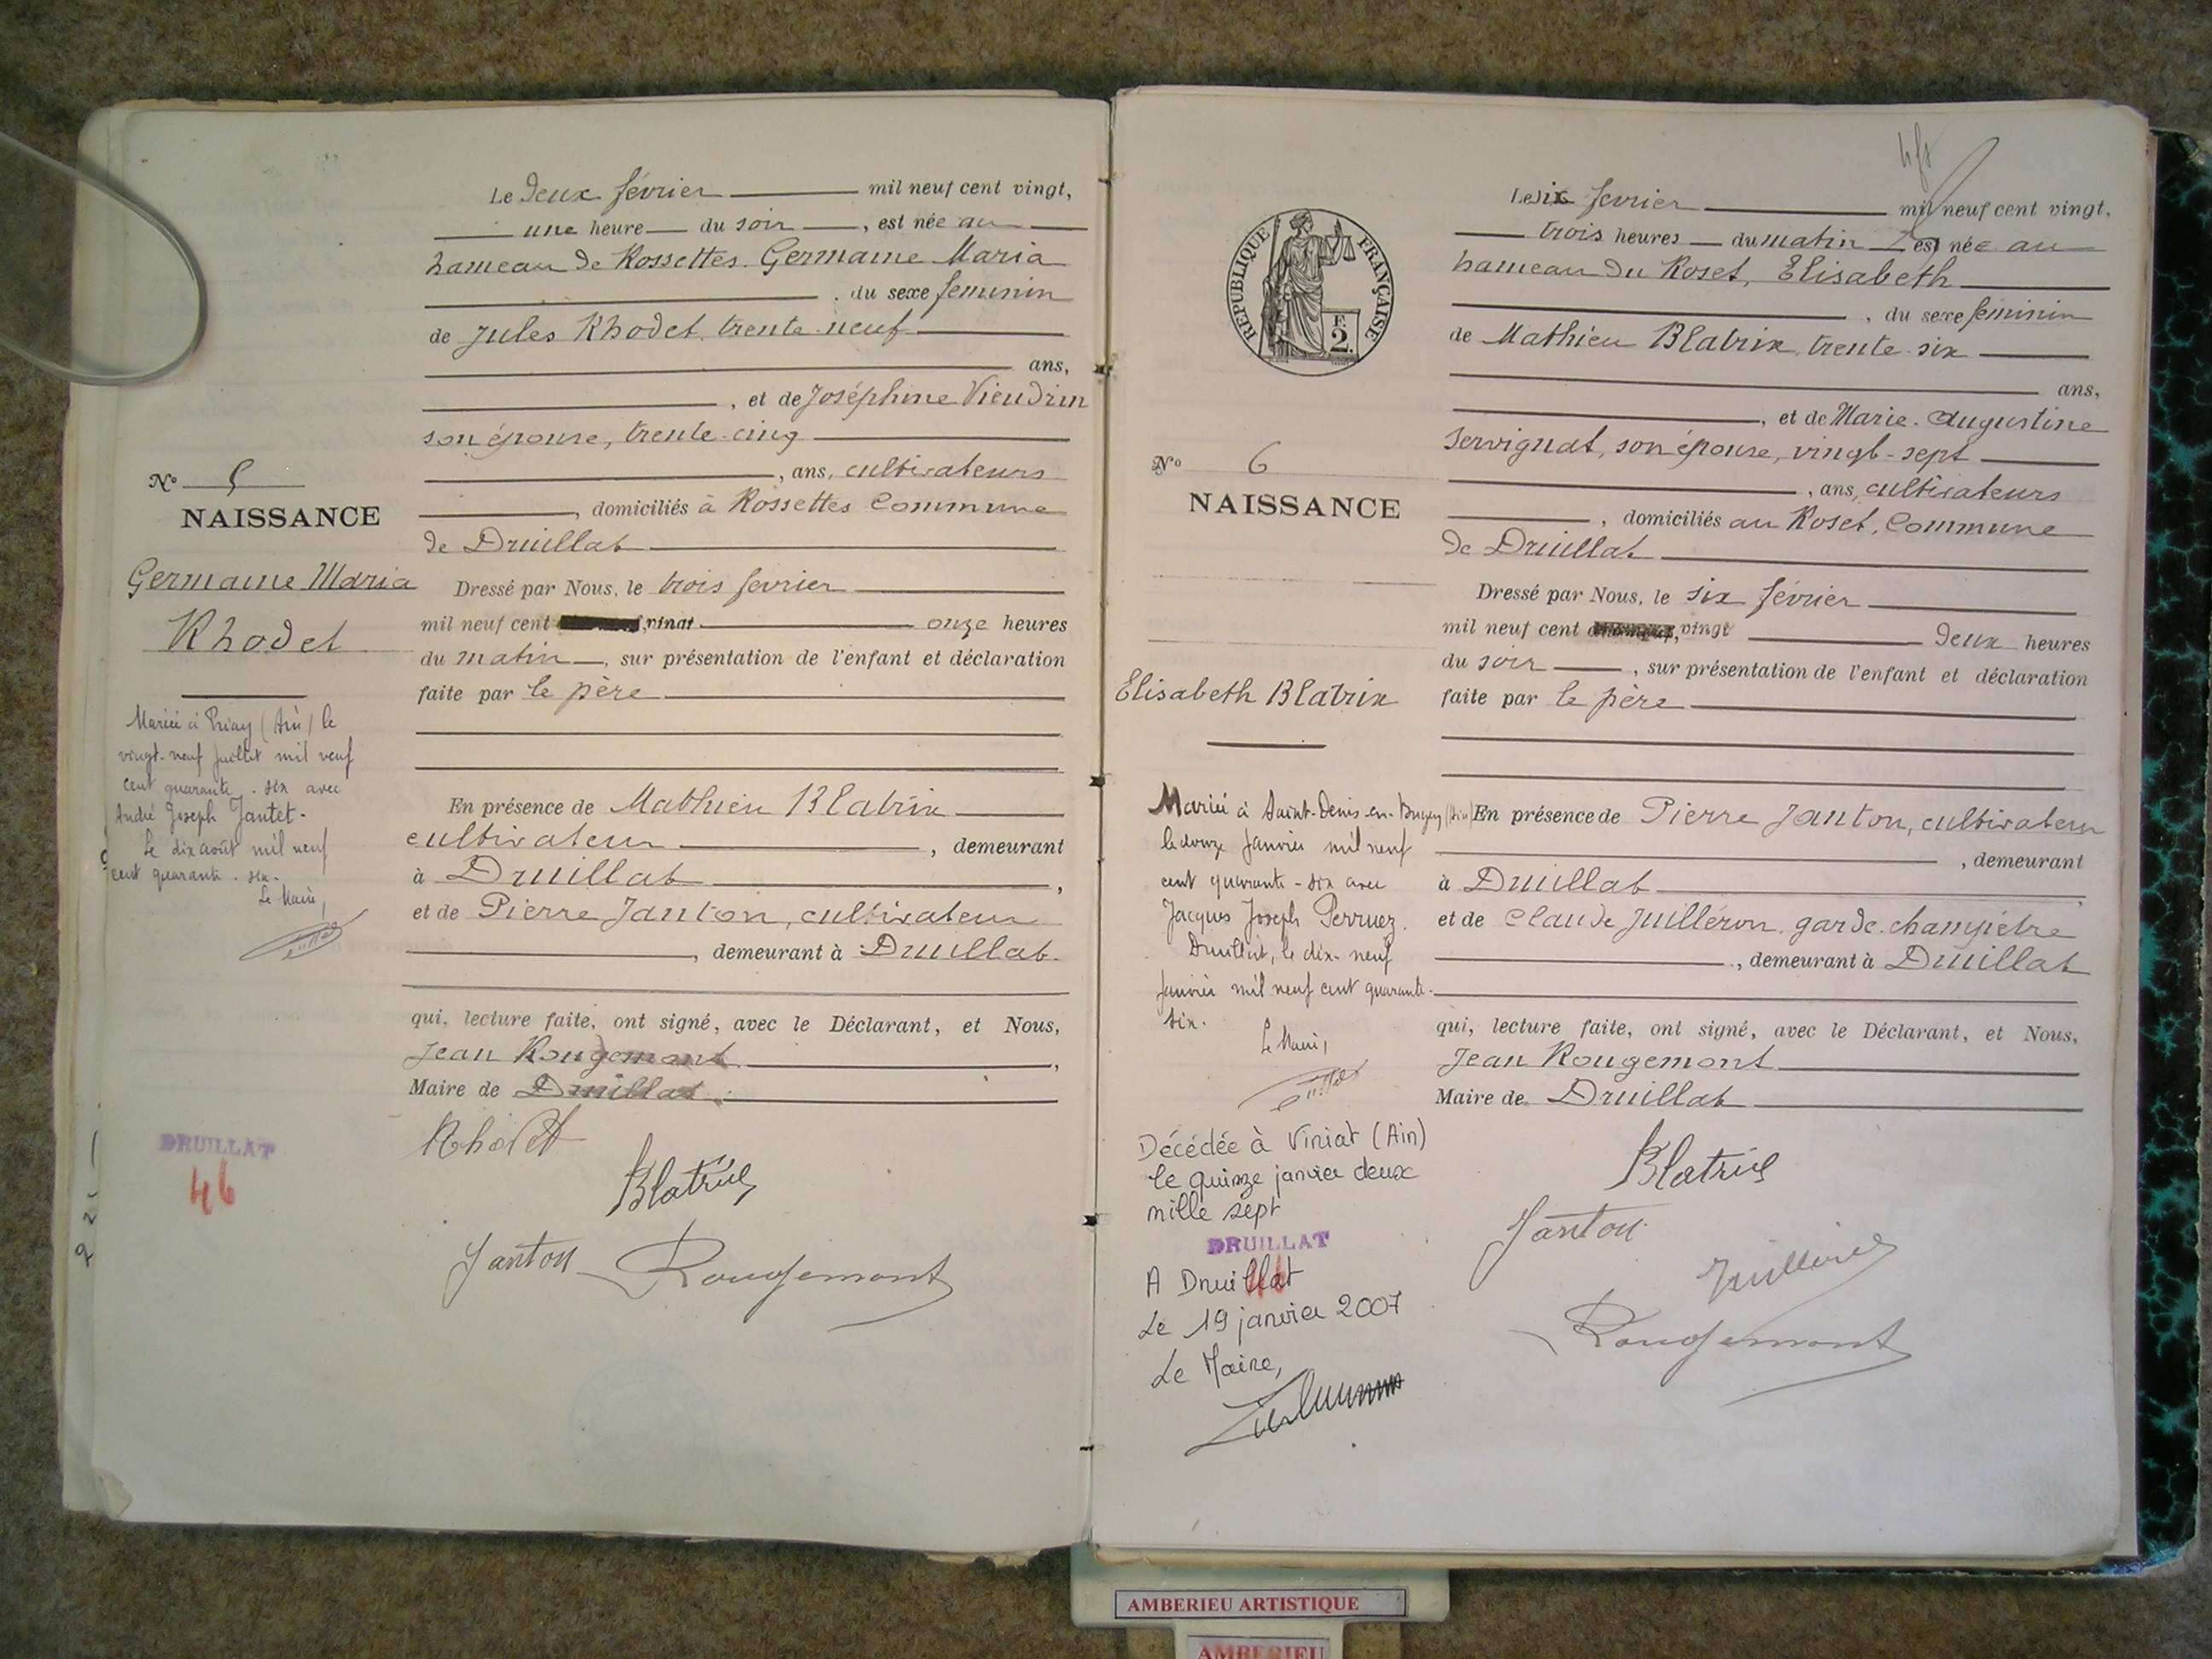 Le deux février mil neuf cent vingt,
une heure du soir, est née au
hameau de Rossettes. Germaine Maria
, du sexe feminin
de Jules Rhodet, trente-neuf
ans,
, et de Joséphine Vieudrin
son épouse, trente-cinq
, ans, cultivateurs
, domiciliés à Rossettes Commune
de Druillat
N° 5
NAISSANCE
Germaine Maria
Rhodet
Dressé par Nous, le trois fevrier
mil neuf cent vingt onze heures
du matin, sur présentation de l'enfant et déclaration
faite par le père
Mariée à Priay (Ain) le
vingt-neuf Juillet mil neuf
cent quarante-six avec
André Joseph Jantet.
Le dix août mil neuf
cent quarante-six.
Le Maire,
En présence de Mathieu Blatrix
cultivateur, demeurant
à Druillat,
et de Pierre Janton, cultivateur
, demeurant à Druillat.
qui, lecture faite, ont signé, avec le Déclarant, et Nous,
Jean Rougemont,
Maire de Druillat.
Rhodet
Blatrix
Janton Rougemont
DRUILLAT
46
Le six fevrier mil neuf cent vingt,
trois heures du matin est née au
hameau du Roset, Elisabeth
, du sexe feminin
de Mathieu Blatrix, trente-six
ans,
, et de Marie-Augustine
Servignat, son épouse, vingt-sept
, ans, cultivateurs
, domiciliés au Roset, Commune
de Druillat
RÉPUBLIQUE FRANÇAISE
F.
2.
N° 6
NAISSANCE
Elisabeth Blatrix
Dressé par Nous, le six février
mil neuf cent vingt deux heures
du soir, sur présentation de l'enfant et déclaration
faite par le père
Mariée à Saint-Denis-en-Bugey (Ain)
le douze Janvier mil neuf
cent quarante-six avec
Jacques Joseph Perruez.
Druillat, le dix-neuf
Janvier mil neuf cent quarante-
six.
Le Maire,
En présence de Pierre Janton, cultivateur
, demeurant
à Druillat
et de Claude Juilléron, garde-champêtre
, demeurant à Druillat
qui, lecture faite, ont signé, avec le Déclarant, et Nous,
Jean Rougemont
Maire de Druillat
Décédée à Viriat (Ain)
le quinze janvier deux
mille sept
DRUILLAT
A Druillat
Le 19 janvier 2007
Le Maire,
Blatrix
Janton
Rougemont
AMBERIEU ARTISTIQUE
AMBERIEU